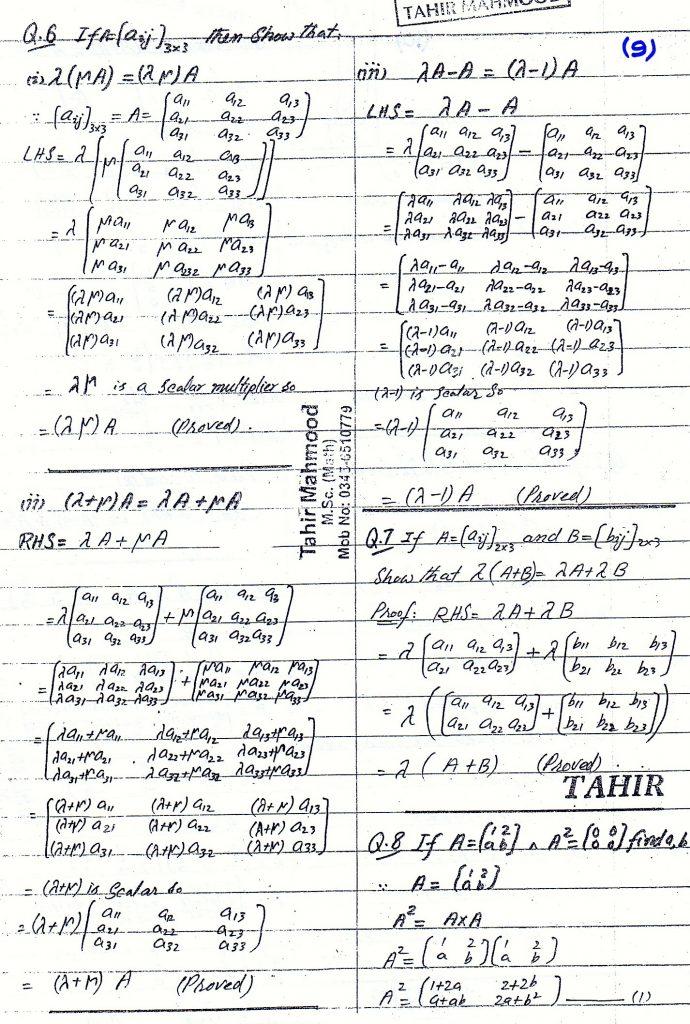 TAHIR MAHMOOD
(9)
Q.6 If A=[aij]3×3 then Show that,
(i) λ(μA) = (λμ)A
∵ [aij]3×3 = A = [a11 a12 a13
a21 a22 a23
a31 a32 a33]
LHS = λ[μ[a11 a12 a13
a21 a22 a23
a31 a32 a33]]
= λ[μa11 μa12 μa13
μa21 μa22 μa23
μa31 μa32 μa33]
= [(λμ)a11 (λμ)a12 (λμ)a13
(λμ)a21 (λμ)a22 (λμ)a23
(λμ)a31 (λμ)a32 (λμ)a33]
= λμ is a Scalar multiplier so
= (λμ)A (Proved).
(ii) (λ+μ)A = λA+μA
RHS = λA+μA
= λ[a11 a12 a13
a21 a22 a23
a31 a32 a33] + μ[a11 a12 a13
a21 a22 a23
a31 a32 a33]
= [λa11 λa12 λa13
λa21 λa22 λa23
λa31 λa32 λa33] + [μa11 μa12 μa13
μa21 μa22 μa23
μa31 μa32 μa33]
= [λa11+μa11 λa12+μa12 λa13+μa13
λa21+μa21 λa22+μa22 λa23+μa23
λa31+μa31 λa32+μa32 λa33+μa33]
= [(λ+μ)a11 (λ+μ)a12 (λ+μ)a13
(λ+μ)a21 (λ+μ)a22 (λ+μ)a23
(λ+μ)a31 (λ+μ)a32 (λ+μ)a33]
= (λ+μ) is Scalar so
= (λ+μ)[a11 a12 a13
a21 a22 a23
a31 a32 a33]
= (λ+μ) A (Proved)
Tahir Mahmood
M.Sc. (Math)
Mob No: 0343-6510779
(iii) λA-A = (λ-1)A
LHS = λA - A
= λ[a11 a12 a13
a21 a22 a23
a31 a32 a33] - [a11 a12 a13
a21 a22 a23
a31 a32 a33]
= [λa11 λa12 λa13
λa21 λa22 λa23
λa31 λa32 λa33] - [a11 a12 a13
a21 a22 a23
a31 a32 a33]
= [λa11-a11 λa12-a12 λa13-a13
λa21-a21 λa22-a22 λa23-a23
λa31-a31 λa32-a32 λa33-a33]
= [(λ-1)a11 (λ-1)a12 (λ-1)a13
(λ-1)a21 (λ-1)a22 (λ-1)a23
(λ-1)a31 (λ-1)a32 (λ-1)a33]
(λ-1) is Scalar So
= (λ-1)[a11 a12 a13
a21 a22 a23
a31 a32 a33]
= (λ-1)A (Proved)
Q.7 If A=[aij]2×3 and B=[bij]2×3
Show that λ(A+B)= λA+λB
Proof: RHS= λA+λB
= λ[a11 a12 a13
a21 a22 a23] + λ[b11 b12 b13
b21 b22 b23]
= λ([a11 a12 a13
a21 a22 a22] + [b11 b12 b13
b21 b22 b23])
= λ(A+B) (Proved).
TAHIR
Q.8 If A=[1 2
a b] ∧ A²=[0 0
0 0] find a,b
∵ A = [1 2
a b]
A² = A×A
A² = [1 2
a b][1 2
a b]
A² = [1+2a 2+2b
a+ab 2a+b²] ——— (1)